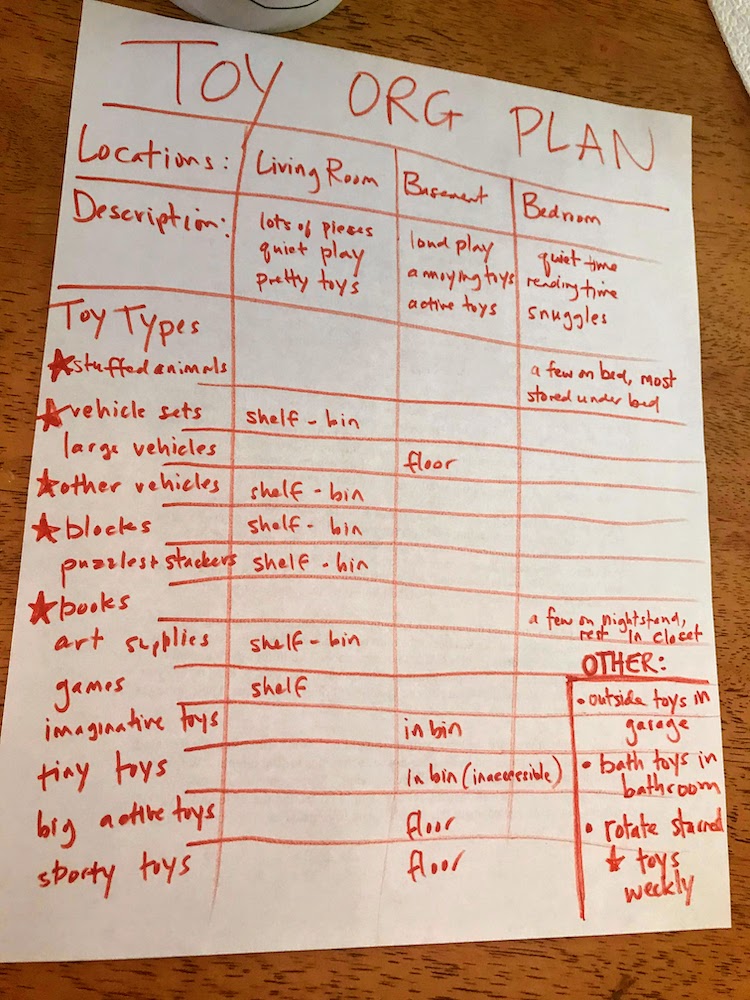 TOY ORG PLAN
Locations: Living Room Basement Bedroom
Description: lots of pieces quiet play pretty toys loud play annoying toys active toys quiet time reading time snuggles
Toy Types
★stuffed animals a few on bed, most stored under bed
★vehicle sets shelf - bin
large vehicles floor
★other vehicles shelf - bin
★blocks shelf - bin
puzzles + stackers shelf - bin
★books a few on nightstand, rest in closet
art supplies shelf - bin
games shelf
imaginative toys in bin
tiny toys in bin (inaccessible)
big active toys floor
sporty toys floor
OTHER:
• outside toys in
garage
• bath toys in
bathroom
• rotate starred
★ toys
weekly